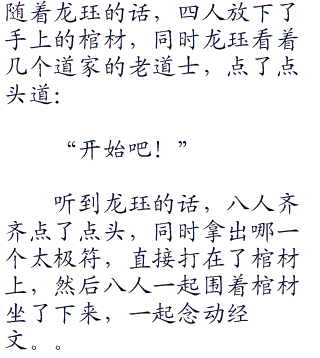 随着龙珏的话，四人放下了
手上的棺材，同时龙珏看着
几个道家的老道士，点了点
头道：
“开始吧！”
听到龙珏的话，八人齐
齐点了点头，同时拿出哪一
个太极符，直接打在了棺材
上，然后八人一起围着棺材
坐了下来，一起念动经
文。。